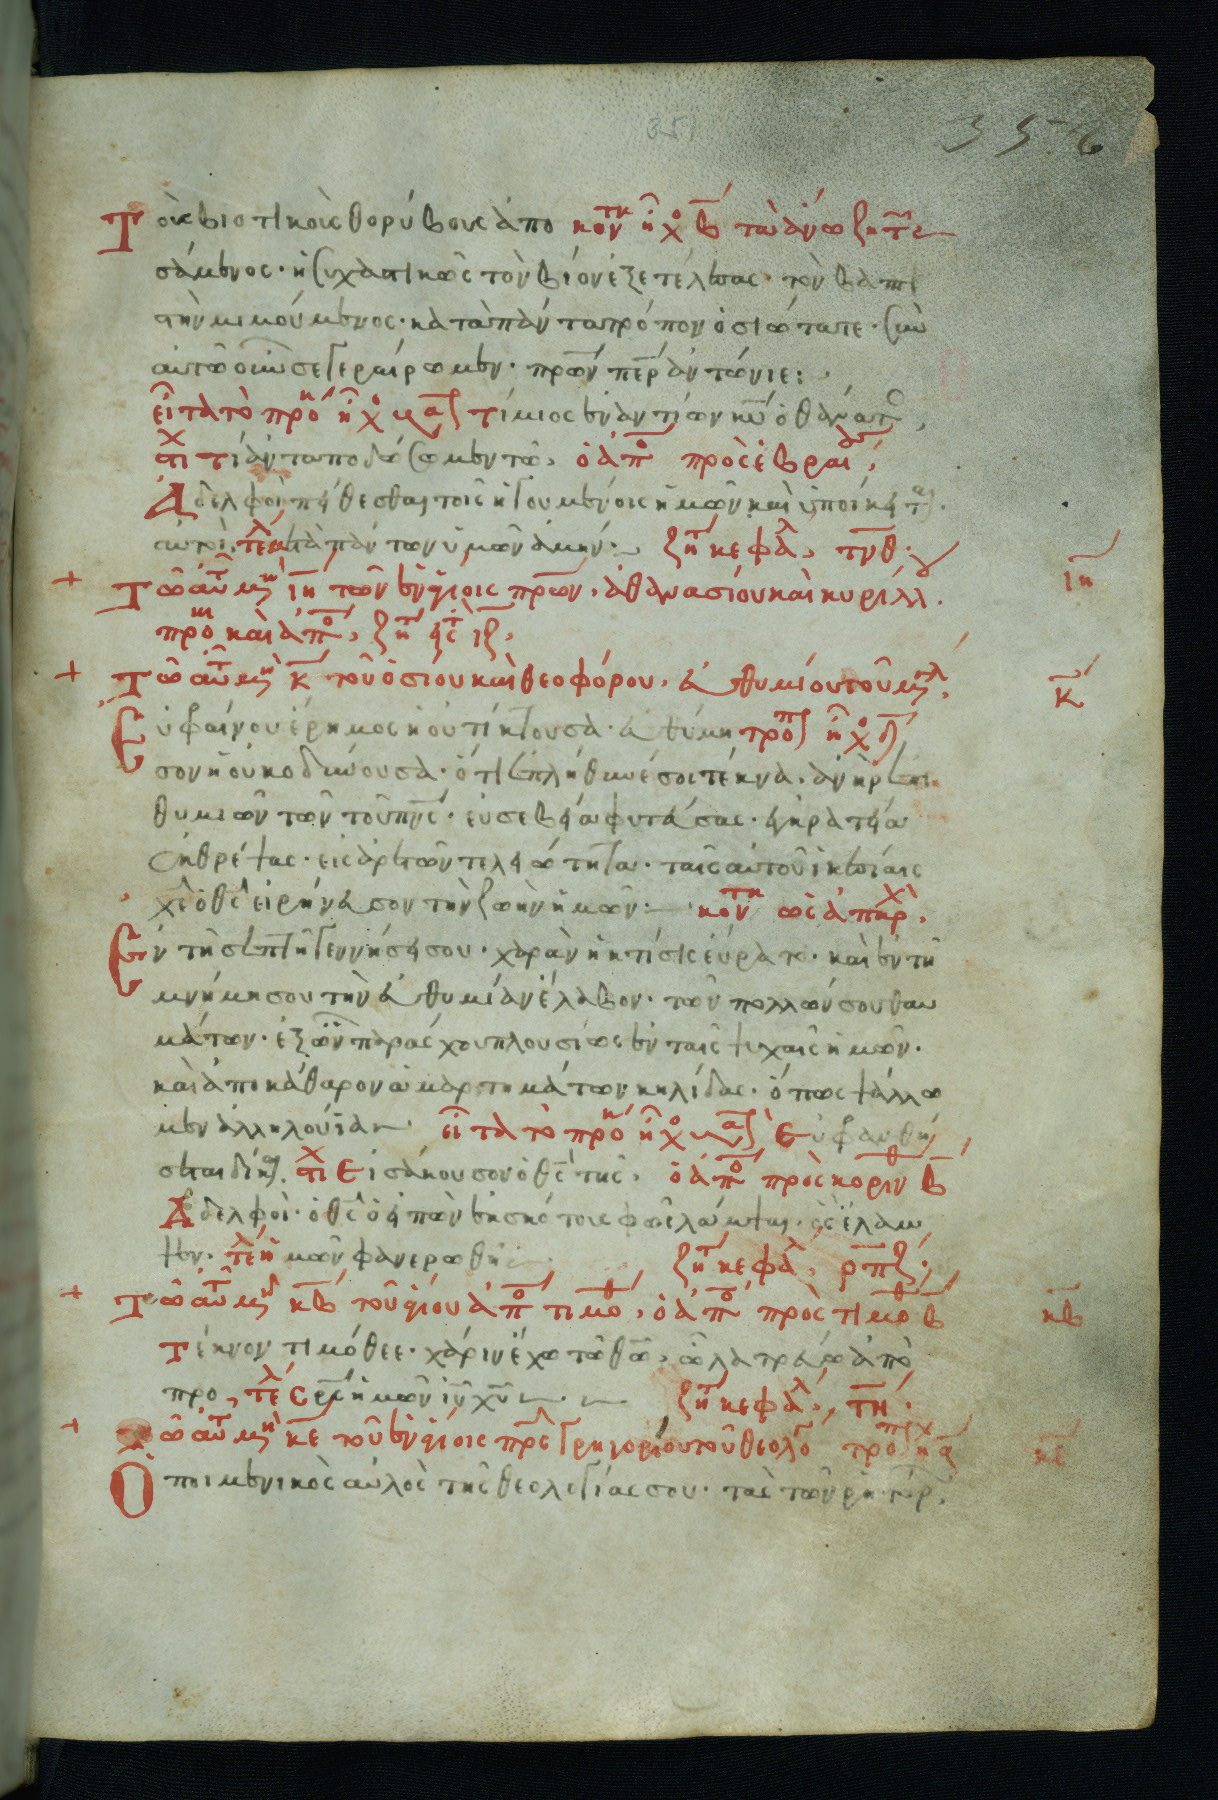 351 356
Τοὺς βιοτικοὺς θορύβους ἀπο κον τκ ἦχος β τὰ ἄνω ζητ
σάμενος· ἡσυχαστικῶς τὸν βίον ἐξετέλεσας· τὸν βαπτι
στὴν μιμούμενος· κατὰ πάντα τρόπον ὁσιώτατε· σὺν
αὐτῶ οὖν σε γεραίρομεν· πρων περ ἁπάντων ιε:
εἶτα τὸ προκ ἦχ Τίμιος ἐναντίον κυ ὁ θάνατ
στι Τί ἀνταποδώσωμεν τῶ, ὁ ἀπο πρὸς ἑβραι
Ἀδελφοὶ πείθεσθαι τοῖς ἡγουμένοις ἡμῶν καὶ ὑπείκετ.
αὐτοῖς, τελ μετὰ πάντων ὑμῶν ἀμήν: ζητ κεφαλ, τνθ.
+ Τῶ αὐτῶ μην ιη τῶν ἐν ἁγίοις πρων, ἀθανασίου καὶ κυρίλλ. ιη
προκ καὶ ἀπο, ζητ εἰς ιζ.
+ Τῶ αὐτῶ μην κ τοῦ ὁσίου καὶ θεοφόρου, εὐθυμίου τοῦ μεγαλ, κ
Εὐφραίνου ἔρημος ἡ οὐ τίκτουσα· εὐθύμη τροπ ἦχ δ
σον ἡ οὐκ ὠδίνουσα· ὅτι ἐπλήθυνέ σοι τέκνα, ἀνὴρ ἐπι
θυμιῶν τῶν τοῦ πνς· εὐσεβεία φυτεύσας· ἐγκρατεία
ἐκθρέψας· εἰς ἀρετῶν τελειότητα· ταῖς αὐτοῦ ἱκεσίαις
χε ὁ θς εἰρήνευσον τὴν ζωὴν ἡμῶν: κον τκ ὡς ἀπαρχ
Ἐν τῆ σεπτῆ γεννήσει σου· χαρὰν ἡ κτίσις εὕρατο· καὶ ἐν τῆ
μνήμη σου τὴν εὐθυμίαν ἔλαβον· τῶν πολλῶν σου θαυ
μάτων· ἐξ ὧν παράσχου πλουσίως ἐν ταῖς ψυχαῖς ἡμῶν·
καὶ ἀποκάθαρον ἁμαρτημάτων κηλῖδας· ὅπως ψάλλω
μεν ἀλληλούϊα εἶτα τὸ προκ ἦχ Εὐφρανθή
σεται δίκ. στι Εἰσάκουσον ὁ θς τῆς, ὁ ἀπο πρὸς κορινθ β
Ἀδελφοὶ· ὁ θς ὁ εἰπὼν ἐκ σκότους φῶς λάμψαι, ὃς ἔλαμ
ψεν. τελ ἡμῶν φανερωθῆ ζητ κεφαλ, ρπζ,
+ Τῶ αὐτῶ μην κβ τοῦ ἁγίου ἀπο τιμοθ, ὁ ἀπο πρὸς τιμοθ β κβ
Τέκνον τιμόθεε· χάριν ἔχω τῶ θῶ, ὧ λατρεύω ἀπὸ
προ, τελ Ἐ κυ ἡμῶν ιυ χυ ζητ κεφαλ, τη.
+ Τῶ αὐτῶ μην κε τοῦ ἐν ἁγίοις πρς Γρηγορίου τοῦ θεολο τροπ ἦχ α κε
Ὁ ποιμενικὸς αὐλὸς τῆς θεολογίας σου· τὰς τῶν ῥητόρ